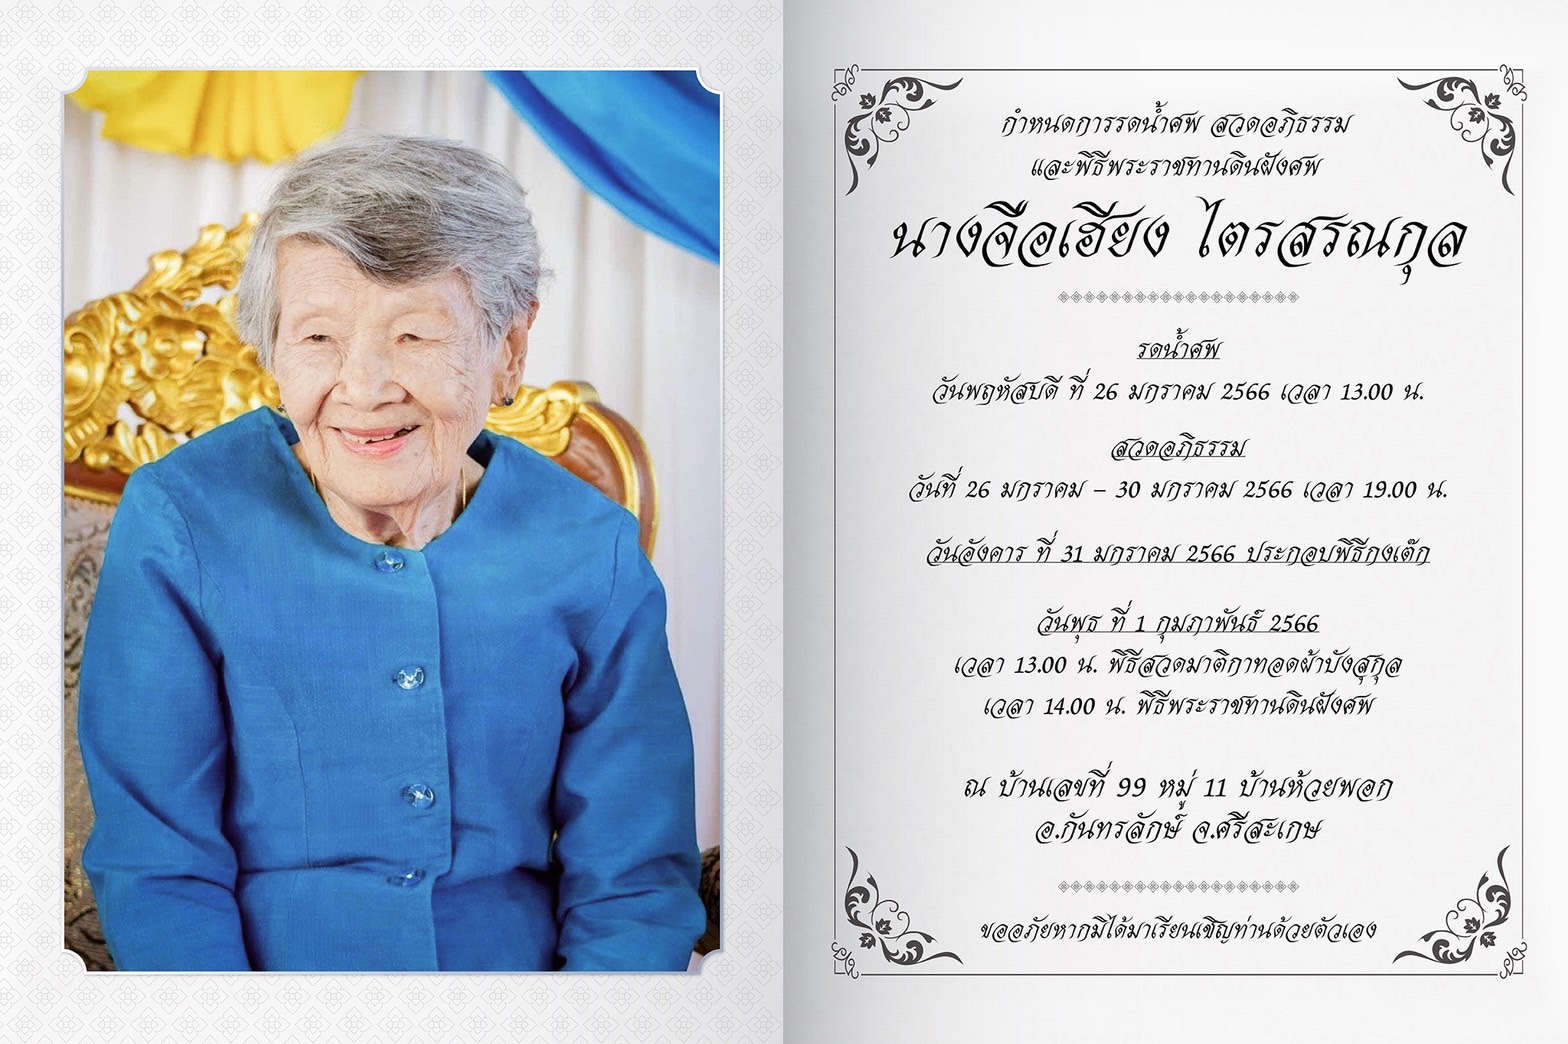 กำหนดการรดน้ำศพ สวดอภิธรรม
และพิธีพระราชทานดินฝังศพ
นางจือเฮียง ไตรสรณกุล
รดน้ำศพ
วันพฤหัสบดี ที่ 26 มกราคม 2566 เวลา 13.00 น.
สวดอภิธรรม
วันที่ 26 มกราคม – 30 มกราคม 2566 เวลา 19.00 น.
วันอังคาร ที่ 31 มกราคม 2566 ประกอบพิธีกงเต๊ก
วันพุธ ที่ 1 กุมภาพันธ์ 2566
เวลา 13.00 น. พิธีสวดมาติกาทอดผ้าบังสุกุล
เวลา 14.00 น. พิธีพระราชทานดินฝังศพ
ณ บ้านเลขที่ 99 หมู่ 11 บ้านห้วยพอก
อ.กันทรลักษ์ จ.ศรีสะเกษ
ขออภัยหากมิได้มาเรียนเชิญท่านด้วยตัวเอง